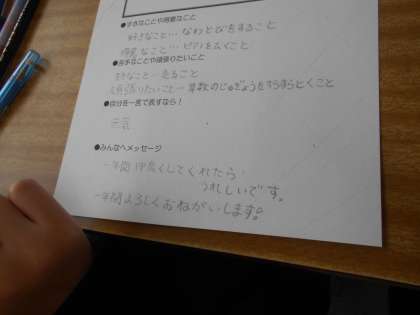 ●好きなことや得意なこと
好きなこと…なわとびをすること
得意なこと…ピアノをひくこと
●苦手なことや頑張りたいこと
苦手なこと…走ること
頑張りたいこと…算数のじゅぎょうをすらすらとくこと
●自分を一言で表すなら!
元気
●みんなへメッセージ
一年間仲良くしてくれたら
うれしいです。
一年間よろしくおねがいします。